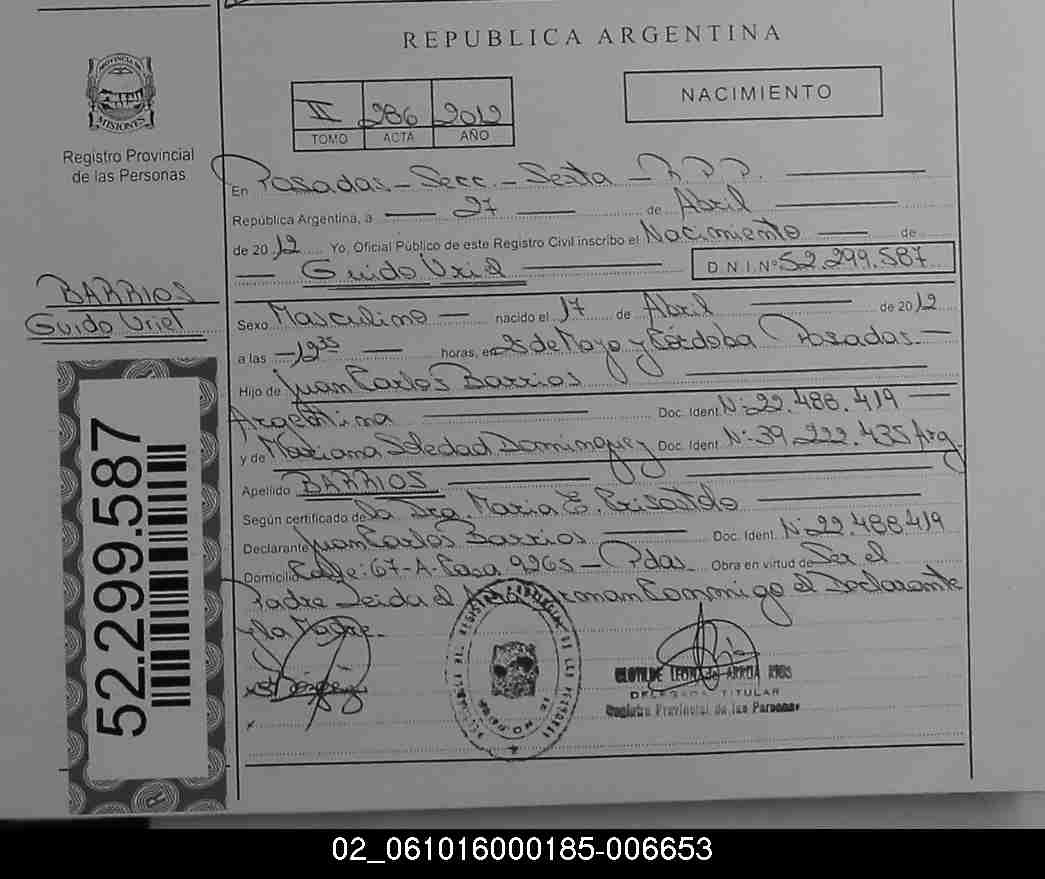 REPUBLICA ARGENTINA
PROVINCIA DE
MISIONES
Registro Provincial
de las Personas
II 286 2012
TOMO ACTA AÑO
NACIMIENTO
En Posadas - Secc. - Sexta - R.P.P.
República Argentina, a 27 de Abril
de 2012 Yo, Oficial Público de este Registro Civil inscribo el Nacimiento de
Guido Uriel D.N.I.Nº 52.299.587
BARRIOS
Guido Uriel
Sexo Masculino nacido el 17 de Abril de 2012
a las 12 35 horas, en 25 de Mayo y Córdoba Posadas
Hijo de Juan Carlos Barrios
Argentina Doc. Ident. Nº: 22.488.419
y de Mariana Soledad Dominguez Doc. Ident. Nº: 39.222.435 Arg.
Apellido BARRIOS
Según certificado de La Dra. Maria E.
Declarante Juan Carlos Barrios Doc. Ident. Nº 22.488.419
Domicilio Calle: 67-A-Casa 9265 - Pdas. Obra en virtud de Ser el
Padre Leida el Acta Firman Conmigo el Declarante
y la Madre.
CLOTILDE ARRUA RIOS
DELEGADA TITULAR
Registro Provincial de las Personas
52.299.587
02_061016000185-006653